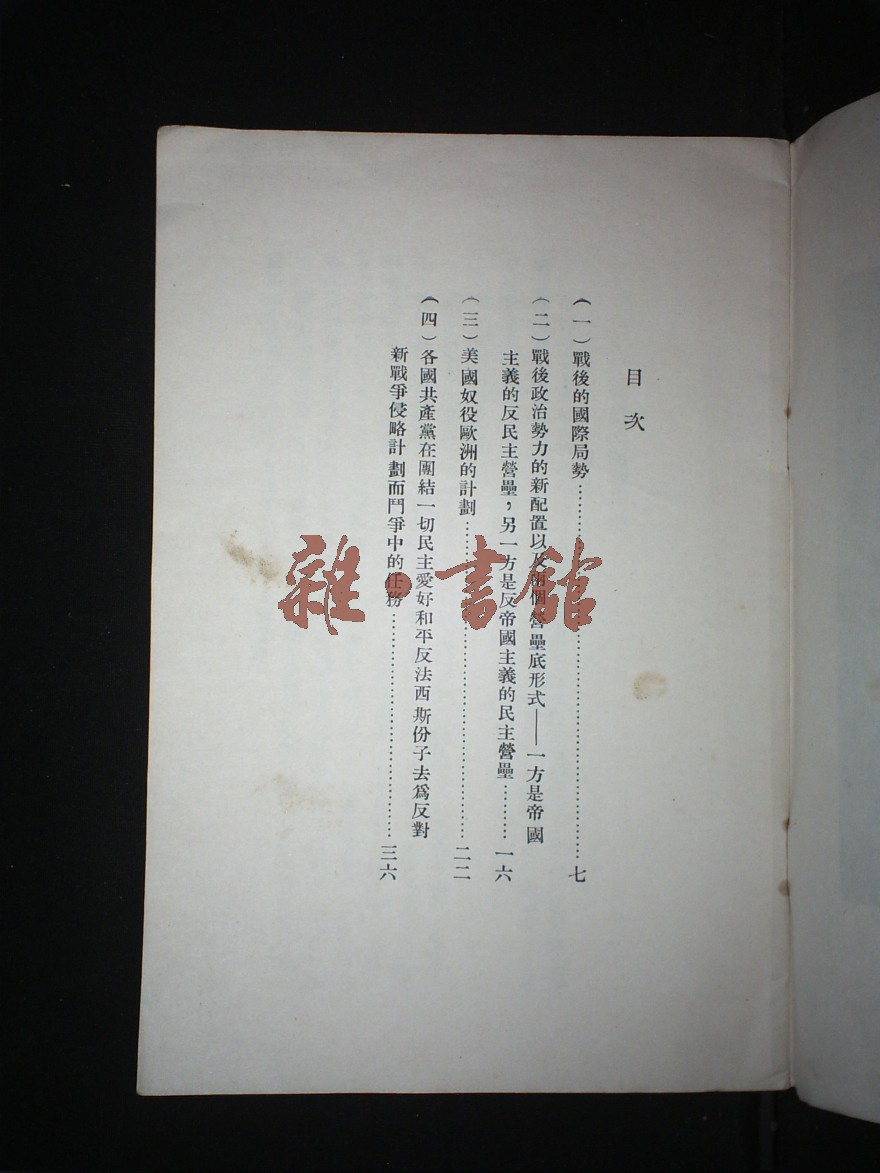 目次
(一)戰後的國際局勢……七
(二)戰後政治勢力的新配置以及兩個營壘底形式——一方是帝國
主義的反民主營壘，另一方是反帝國主義的民主營壘……一六
(三)美國奴役歐洲的計劃……二二
(四)各國共產黨在團結一切民主愛好和平反法西斯份子去爲反對
新戰爭侵略計劃而鬥爭中的任務……三六
雜·書館